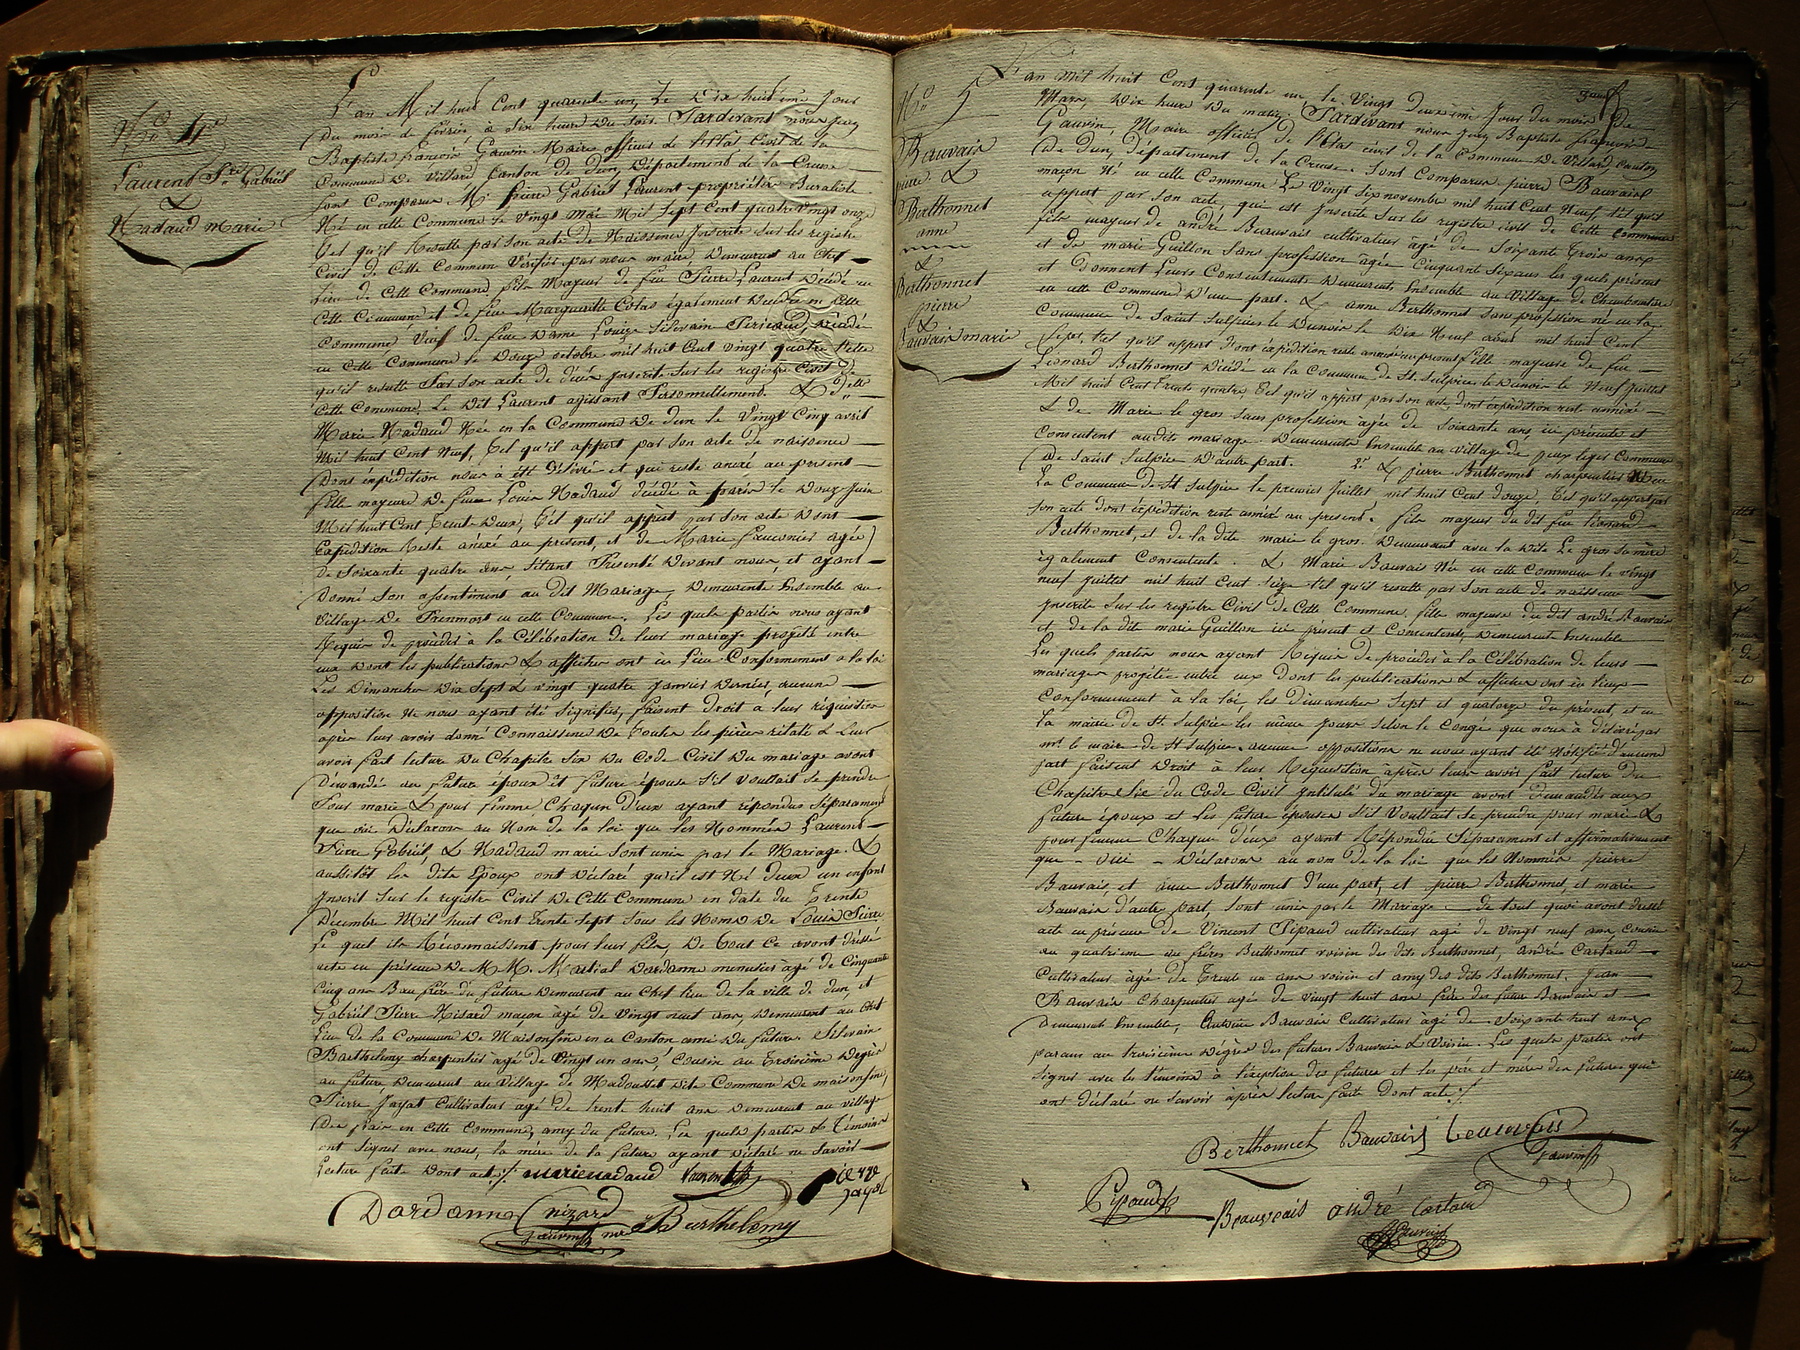 No 4e
Laurent Pre Gabriël
&
Nadaud Marie
L'an Mil huit Cent quarante un, Le Dix huitième Jour
du mois de février à Six heure du Soir. Pardevant nous Jean
Baptiste françois Gauvin Maire officier de l'état Civil de la
Commune De Villard Canton de dun, Département de la Creuse
Sont Comparus Mr pierre Gabriël Laurent propriétaire Buraliste
Né en cette Commune le vingt Mai Mil Sept Cent quatre vingt onze
tel qu'il Résulte par Son acte de Naissence Inscrite Sur les registre
Civil de Cette Commune Vérifiée par nous maire, Demeurant au Chef
Lieu de Cette Commune. fils Majeur de feu Pierre Laurent Décédé en
Cette Commune et de feue Marguerite Colas également Décédée en Cette
Commune, Veuf de feue Dame Louise Silvain Decédée
en cette Commune le Douze octobre mil huit Cent vingt quatre tel
qu'il résulte Par Son acte de décès Inscrite Sur les registre Civil de
Cette Commune, Le Dit Laurent agissant Personnellement. & Delle
Marie Nadaud Née en la Commune De dun le Vingt Cinq avril
Mil huit Cent Neuf, tel qu'il appert par Son acte de naissence
Dont éxpédition nous à été délivrée et qui reste anéxé au présent
fille majeure De feue Louis Nadaud décédé à paris le Douze Juin
Mil huit Cent Trente Deux, tel qu'il appert par Son acte Dont
Expédition Reste anéxé au présent, et de Marie fauconier agée
De Soixante quatre ans, S'étant Présenté Devant nous, et ayant
Donné Son assentiment au dit Mariage, Demeurente Ensemble au
Village De en cette Commune. Les quels partie nous ayant
Requis de procéder à la Célébration de leur mariage projeté entre
eux Dont les publications & affiches ont eu Lieu Conformement a la loi
Les Dimanches Dix Sept & vingt quatre Janvier Dernier, aucune
opposition Ne nous ayant été Signifié, faisent Droit a leur réquisition
après leur avoir donné Connaissence De toutes les pièces rélaté & leur
avoir fait lecture Du Chapitre Six Du Code Civil Du mariage avont
Démandé au future époux et future épouse S'il Voullait Se prendre
Pour marie & pour femme Chaqun D'eux ayant répondus Séparament
que oui Déclarons au Nom de la loi que les Nommés Laurent
Pierre Gabriël, & Nadaud marie Sont unis par le Mariage. &
aussitôt les dits Epoux ont Déclaré qu'il est Né D'eux un enfant
Inscrit Sur le registre Civil De Cette Commune en date du Trente
Décembre Mil huit Cent Trente Sept Sous les Noms De Louis Pierre
Le quel ils Réconnaissent pour leur fils, De tout Ce avont Dréssé
acte en présence De M.M. Martial Dardanne menusier âgé de Cinquante
Cinq ans Bau frère du future Demeurent au Chef lieu de la ville de dun, et
Gabriël Pierre Nisard maçon agé de Vingt neuf ans Demeurent au Chef
Lieu de la Commune De Maisonfeine Ce Canton amie Du future. Silvain
Barthelemy charpentier âgé de Vingt un ans, Cousin au Troisième Dégrée
au future, Demeurent au Village de Madousset Dite Commune De maisonfeine,
Pierre Jayat Cultivateur agé De trente huit ans Demeurent au village
Des en cette Commune, amy du future. Les quels partie & Témoins
ont Signer avec nous, la mère de la future ayant Déclaré ne Savoir
Lecture faite Dont acte./. marie nadaud Laurent pierre
Jayat
Dardanne nizard Barthelemy
Gauvin mre
No 5
Bauvais
pierre &
Berthonnet
anne
&
Berthonnet
pierre
&
Bauvais marie
L'an Mil huit Cent quarante un le Vingt Deuxième Jour du mois de
Mars, Dix heure Du matin. Pardevant nous Jean Baptiste françois
Gauvin, Maire officier de l'état civil de la Commune De Villard, Canton
De Dun, Département de la Creuse. Sont Comparus pierre Bauvais
maçon Né en cette Commune Le Vingt Six novembre mil huit Cent Neuf tel qu'il
appert par Son acte, qui est Inscrite Sur les registre civil de Cette Commune
fils mayeur de andré Beauvais cultivateur âgé de Soixante Trois ans
et de marie Guillon Sans profession agée Cinquante Six ans les quels présent
et Donnent Leurs Consentements Demeurents Ensemble au Village de Chambontrut
en cette Commune D'une part. & anne Berthonnet Sans profession né en la
Commune de Saint Sulpice le Dunois le Dix Neuf août mil huit Cent
Sept, tel qu'il appert Dont éxpédition reste annéxée au présent fille majeure de feu
Léonard Berthonnet Décédé en la Commune de St. Sulpice le Dunois le Neuf Juillet
Mil huit Cent Trente quatre, tel qu'il appert par Son acte, Dont éxpédition reste annéxé
& de Marie le gros Sans profession agée de Soixante ans, ici présente et
Consentent au dits mariage. Demeurente Ensemble au Village de peux leger Commune
De Saint Sulpice D'autre part. 2e & pierre Berthonnet charpentier Né en
La Commune de St Sulpice le premier Juillet mil huit Cent Douze, tel qu'il appert par
Son acte dont éxpédition reste annéxé au présent. fils majeur du dit feu léonard
Berthonnet, et de la dite marie le gros. Demeurent avec la Dite Le gros Sa mère
également Consentente. & Marie Bauvais Née en cette Commune le vingt
neuf Juillet mil huit Cent Seize tel qu'il résulte par Son acte de naissence
Inscrite Sur les registre Civil De Cette Commune, fille majeure du dit andré Bauvais
et de la dite marie Guillon ici présent et Consentents, Demeurent Ensemble
Les quels partie nous ayant Réquis De procéder à la Célébration de leurs
mariages projettée entre eux Dont les publications & affiches ont eu lieux
Conformement à la loi, les Dimanches Sept et quatorze du présent, et en
la mairie de St Sulpice les même jours Selon le Congé que nous à délivré par
mr. le maire de St Sulpice. aucune oppositions ne nous ayant été Notifié D'aucune
part faisent Droit à leur Réquisition âprès leurs avoir fait lecture Du
Chapitre Six Du Code Civil Intitulé Du mariage avont Demandés aux
future époux et les future épouses S'il Voullait Se prendre pour marie &
pour femme Chaque D'eux ayant Répondue Séparament et affirmativement
que - oui - Déclarons au nom De la loi que les Nommés pierre
Bauvais, et anne Berthonnet D'une part, et pierre Berthonnet, et marie
Bauvais D'autre part, Sont unis par le Mariage. de tout quoi avont dréssé
acte en présence de Vincent Pipaud cultivateur agé de vingt neuf ans cousin
au quatrième au frères Berthonnet voisin des dits Berthonnet, andré Cartaud
Cultivateur âgé de Trente un ans voisin et amy des dits Berthonnet, Jean
Bauvais Charpentier agé de vingt huit ans frère des futur Bauvais et
Demeurent Ensemble, Antoine Bauvais Cultivateur âgé de Soixante huit ans
parans au troisième Dégrée des futurs Bauvais & Voisin. Les quels partie ont
Signer avec les témoins à l'éxeption des futures et les père et mère des futures qui
ont déclaré ne Savoir après lecture faite Dont acte./.
Berthonnet Bauvais beauvais
Gauvin
Pipaud Beauveais andré Cartaud
Gauvin